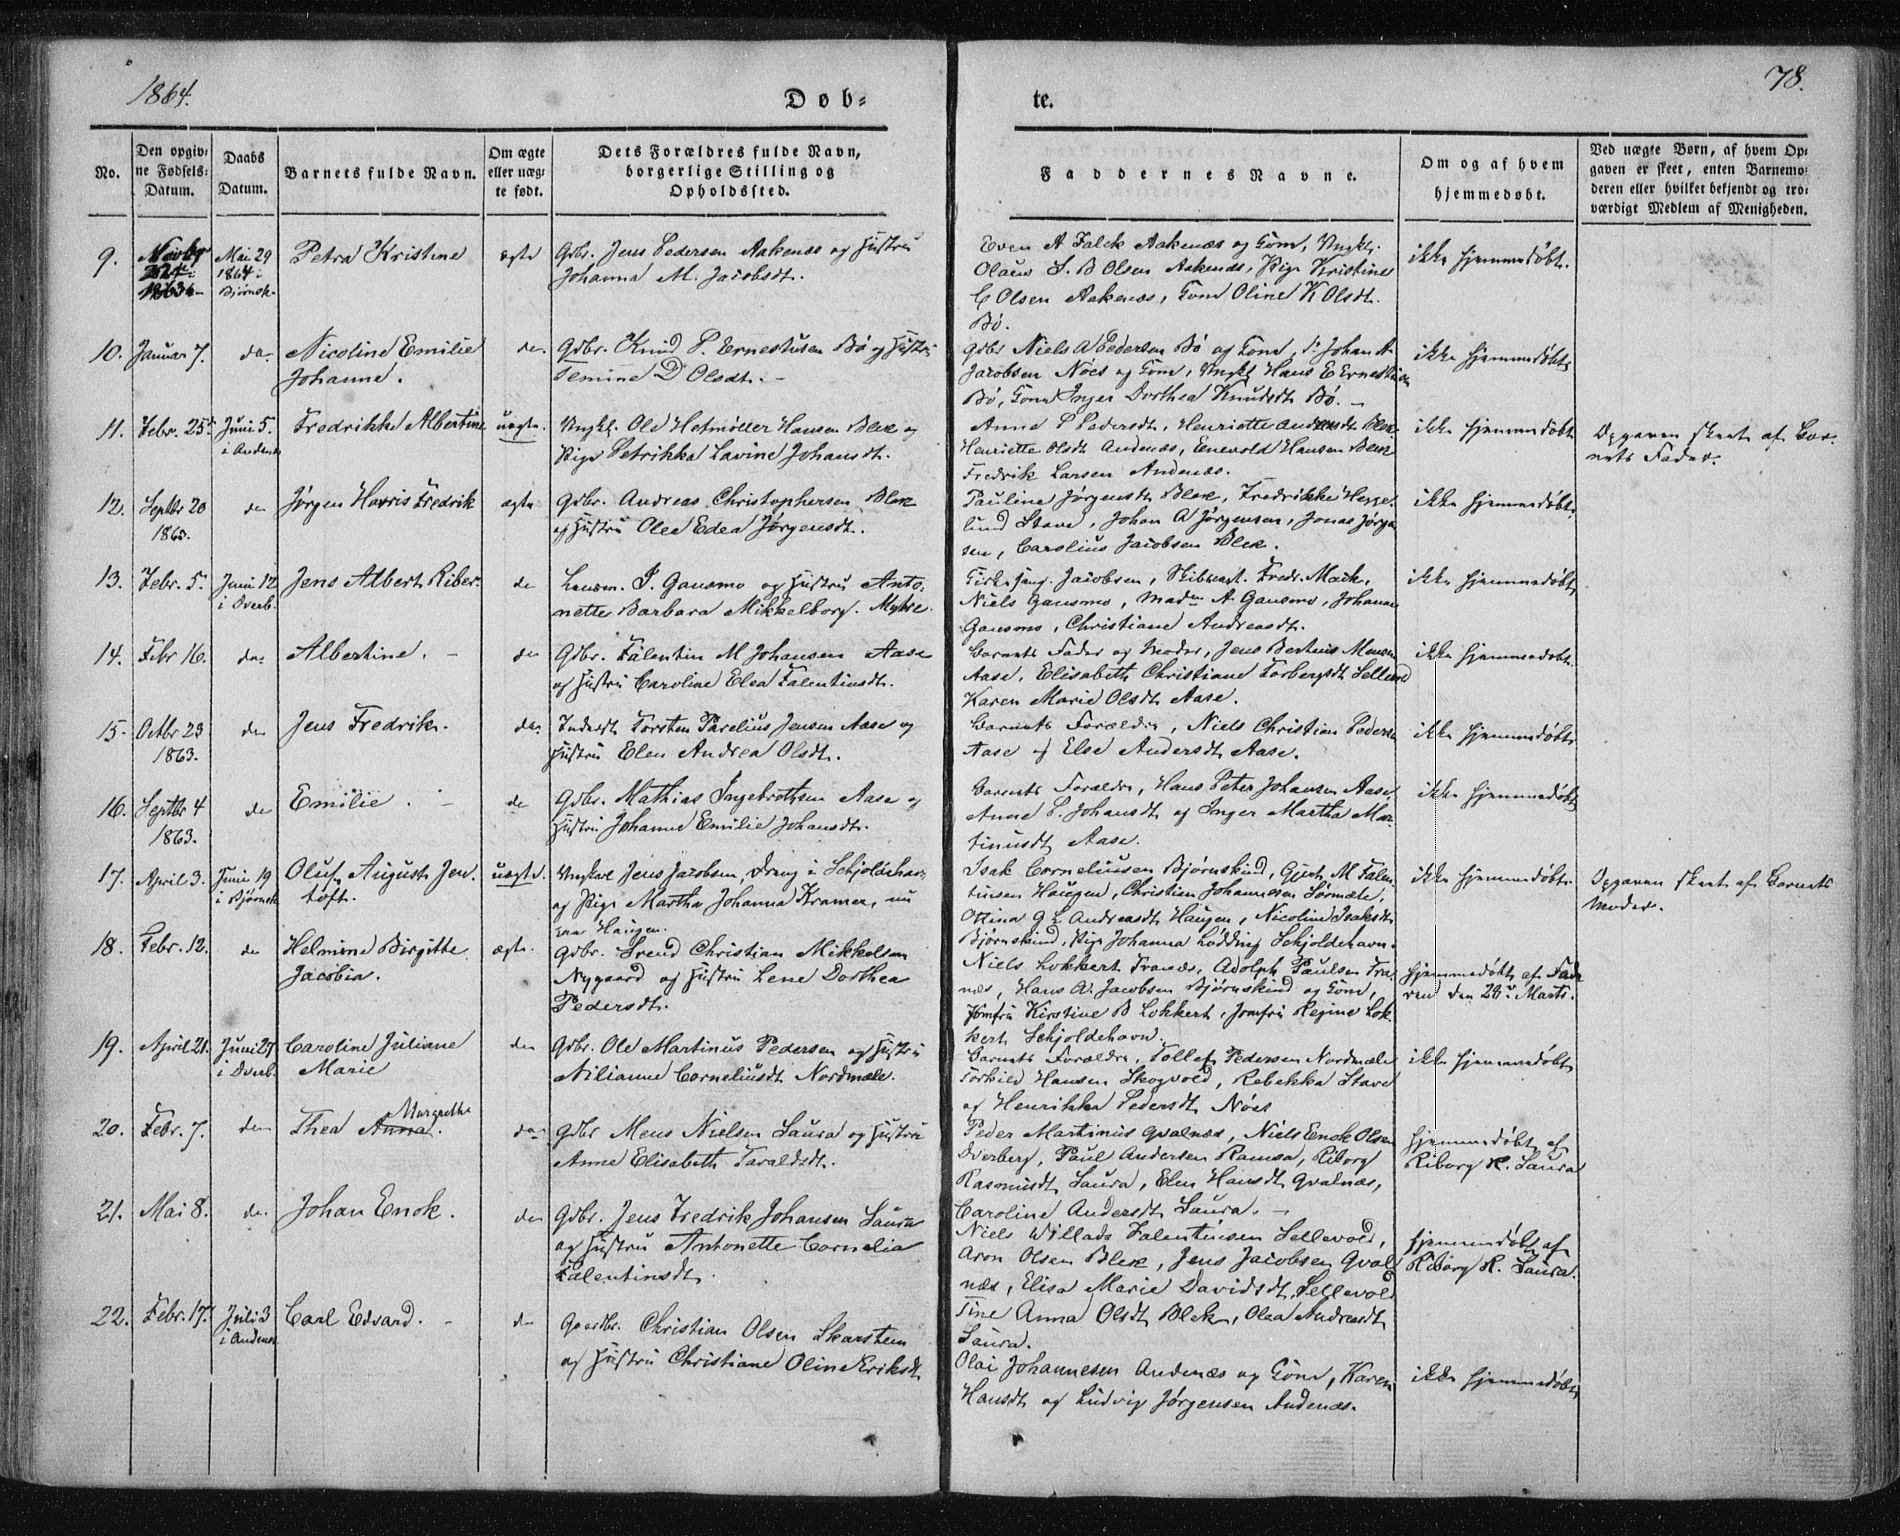 1864.
Døb-
te.
78.
No.
Den opgiv-
ne Fødsels-
Datum.
Daabs
Datum.
Barnets fulde Navn.
Om ægte
eller uæg-
te født.
Dets Forældres fulde Navn,
borgerlige Stilling og
Opholdssted.
Faddernes Navne.
Om og af hvem
hjemmedøbt.
Ved uægte Børn, af hvem Op-
gaven er skeet, enten Barnemo-
deren eller hvilket bekjendt og tro-
værdigt Medlem af Menigheden.
9.
1863
Mai 29
1864
Bjørnsk.
Petra Kristine
ægte
Gdbr. Jens Pedersen Aakenæs og Hustru
Johanna M. Jacobsdt.
Even A Falck Aakenæs og Kone, Ungkl.
Olaus S. B Olsen Aakenæs, Pige Kristine
C Olsen Aakenæs, Kone Oline K Olsdt.
Bø.
ikke hjemmedøbt.
10.
Januar 7.
do.
Nicoline Emilie
Johanne.
do.
Gdbr. Knud P. Ernestusen Bø og Hustru
Jemine D Olsdt. –
Gdbr Niels A Pedersen Bø og Kone, do Johan A.
Jacobsen Nöes og Kone, Ungkl Hans E Ernestusen
Bø, Kone Inger Dorthea Knudsdt Bø. –
ikke hjemmedøbt
11.
Febr. 25
Juni 5.
i Andenæs
Fredrikke Albertine
uægte.
Ungkl. Ole Hetmøller Hansen Blek og
Pige Petrikka Lavine Johansdt.
Anne P Pedersdt, Henriette Andersdt Blek
Henriette Olsdt Andenæs, Enevold Hansen Blek
Fredrik Larsen Andenæs.
ikke hjemmedøbt
Opgaven skeet af Bar-
nets Fader.
12.
Septbr 20
1863.
do
Jørgen Harris Fredrik
ægte
Gdbr. Andreas Christophersen Blek
og Hustru Olea Edea Jørgensdt.
Pauline Jørgensdt Blek, Fredrikke Hegge-
lund Stave, Johan A Jørgensen, Jonas Jørgen-
sen, Carolius Jacobsen Blek.
ikke hjemmedøbt.
13.
Febr. 5
Juni 12
i Dverb.
Jens Albert Riber.
do
Lensm. J. Gausmo og Hustru Anto-
nette Barbara Mikkelborg. Myhre.
Kirkesang. Jacobsen, Skibsent. Fredr. Mack,
Niels Gausmo, Madm A. Gausmo, Johanne
Gausmo, Christiane Andreasdt.
ikke hjemmedøbt
14.
Febr 16.
do.
Albertine. –
do
Gdbr. Falentin M Johansen Aase
og Hustru Caroline Elea Falentinsdt.
Barnets Fader og Moder, Jens Bertinus Monsen
Aase, Elisabeth Christiane Torbergsdt Sellevold
Karen Marie Olsdt Aase.
ikke hjemmedøbt.
15.
Octbr 23
1863.
do
Jens Fredrik.
do.
Inderst Torsten Parelius Jensen Aase og
Hustru Elen Andrea Olsdt.
Barnets Forældre, Niels Christian Pedersen
Aase og Else Andersdt Aase.
ikke hjemmedøbt
16.
Septbr 4
1863.
do
Emilie. –
do
Gdbr. Mathias Ingebrothsen Aase og
Hustru Johanne Emilie Johansdt.
Barnets Forældre, Hans Peter Johansen Aase,
Anne P. Johansdt og Inger Martha Mar-
tinusdt Aase.
ikke hjemmedøbt
17.
April 3.
Juni 19
i Bjørnsk
Oluf August Jen-
toft.
uægte.
Ungkarl Jens Jacobsen, Dreng i Schjoldehavn
og Pige Martha Johanna Kramer, nu
paa Haugen.
Isak Corneliusen Bjørnskind, Gjert M. Falen-
tinsen Haugen, Christian Johannesen Sørmæle,
Ottina G L Andreasdt Haugen, Nicoline Isaksdt
Bjørnskind, Pige Johanna Lødding Schjoldehavn.
ikke hjemmedøbt.
Opgaven skeet af Barnets
Moder.
18.
Febr. 12.
do
Helmine Birgitte
Jacobia.
ægte.
Gdbr. Svend Christian Mikkelsen
Nygaard og Hustru Lene Dorthea
Pedersdt.
Niels Lokkert Tranæs, Adolph Paulsen Tra-
næs, Hans A. Jacobsen Bjørnskind og Kone,
Jomfru Kirstine B Lokkert, Jomfru Regine Lok-
kert Schjoldehavn.
hjemmedøbt af Fade-
ren den 28de Marts.
19.
April 21.
Juni 27
i Dverb.
Caroline Juliane
Marie
do
Gdbr. Ole Martinus Pedersen og Hustru
Nilianne Corneliusdt Nordmæle.
Barnets Forældre, Tollef Pedersen Nordmæle
Torkild Hansen Skogvold, Rebekka Stave
og Henrikka Pedersdt Nöes
ikke hjemmedøbt
20.
Febr. 7.
do
Margrethe
Thea Anna.
do
Gdbr Mons Nielsen Saura og Hustru
Anne Elisabeth Taraldsdt.
Peder Martinus Qvalnæs, Niels Enok Olsen
Dverberg, Paul Andersen Ramsa, Riborg
Rasmusdt Saura, Elen Hansdt Qvalnæs,
Caroline Andersdt Saura. –
hjemmedøbt af
Riborg R. Saura
21.
Mai 8.
do
Johan Enok.
do
Gdbr. Jens Fredrik Johansen Saura
og Hustru Antonette Cornelia
Falentinsdt.
Niels Willads Falentinsen Sellevold,
Aron Olsen Blek, Jens Jacobsen Qval-
næs, Elisa Marie Davidsdt Sellevold
Tine Anna Olsdt Blek, Olea Andreasdt
Saura.
hjemmedøbt af
Riborg R. Saura.
22.
Febr. 17.
Juli 3
i Andenæs
Carl Edvard. –
do
Gaardbr. Christian Olsen Skarstein
og Hustru Christiane Oline Eriksdt
Olai Johannesen Andenæs og Kone, Karen
Hansdt og Ludvig Jørgensen Andenæs.
ikke hjemmedøbt